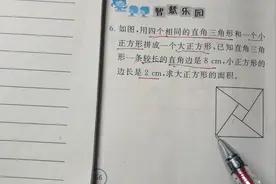 智慧乐园
6. 如图,用四个相同的直角三角形和一个小
正方形拼成一个大正方形,已知直角三角
形一条较长的直角边是 8 cm,小正方形的
边长是 2 cm,求大正方形的面积。